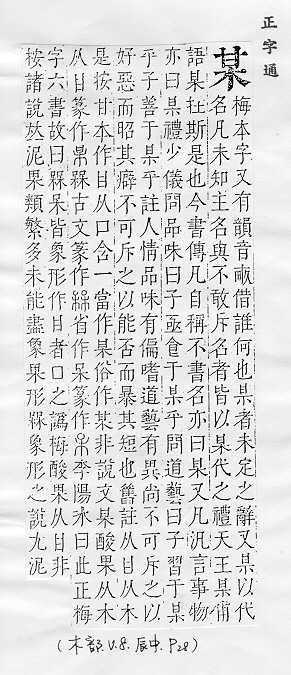 正字通
某
梅本字又有韻音畝借誰何也某者未定之辭又某以代
名凡未知主名與不敢斥名者皆以某代之禮天王某甫
語某在斯是也今書傳凡自稱不書名亦曰某又凡汎言事物
亦曰某禮少儀問品味曰子亟食于某乎問道藝曰子習于某
乎子善于某乎註人情品味有偏嗜道藝有異尚不可斥之以
好惡而昭其癖不可斥之以能否而暴其短也舊註从日从木
是按甘本作甘从口含一當作某俗作某非說文某酸果从木
从甘篆作槑古文篆作省作呆篆作李陽冰曰此正梅
字六書故曰槑呆皆象形作甘者口之譌梅酸果从甘非
按諸說泥果類繁多未能盡象果形槑象形之說尤泥
(木部.V.8.辰中.P28)